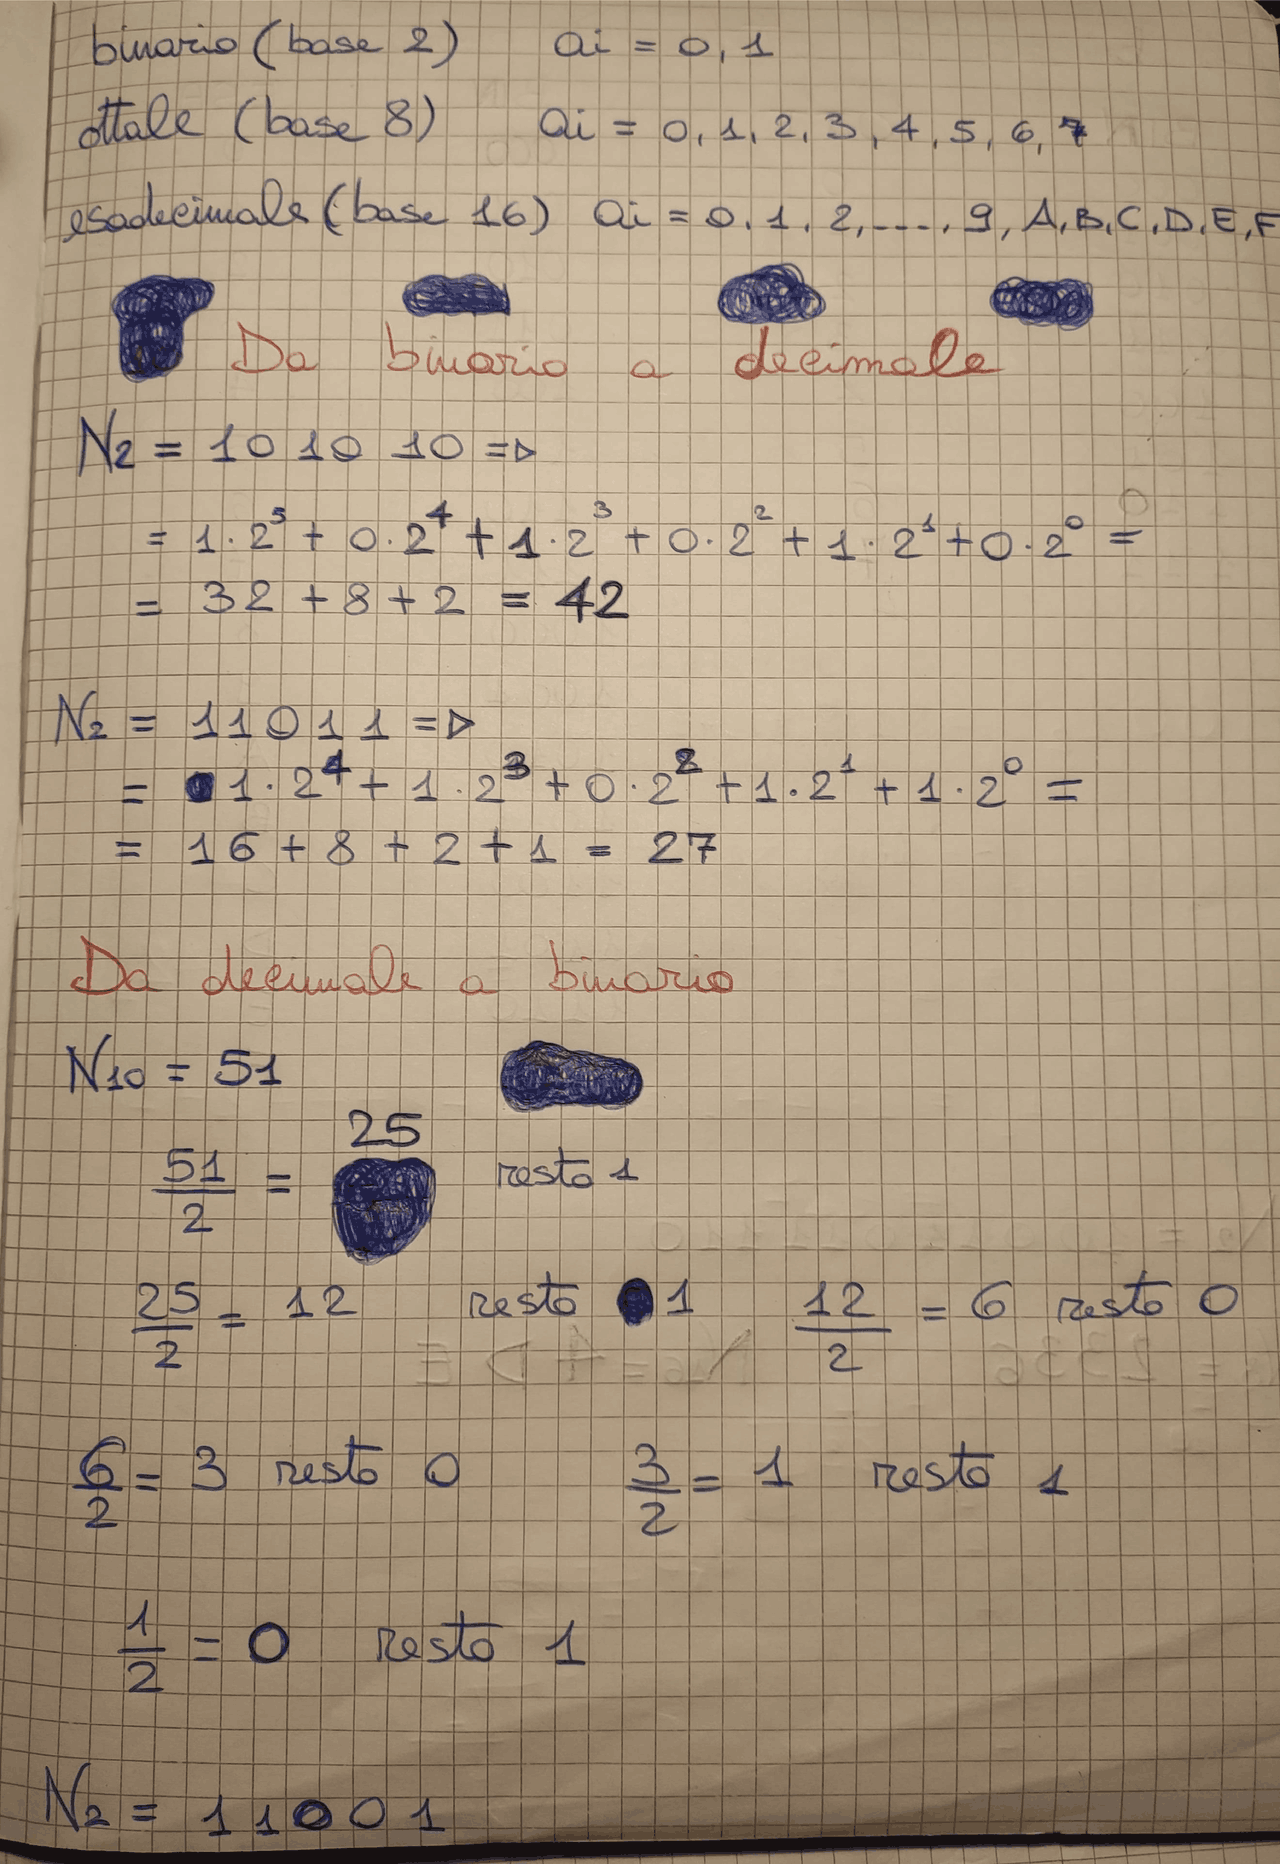 binario (base 2) ai = 0, 1
ottale (base 8) ai = 0, 1, 2, 3, 4, 5, 6, 7
esadecimale (base 16) ai = 0, 1, 2, ...., 9, A, B, C, D, E, F
Da binario a decimale
N₂ = 101010 =▷
= 1·2⁵ + 0·2⁴ + 1·2³ + 0·2² + 1·2¹ + 0·2⁰ =
= 32 + 8 + 2 = 42
N₂ = 11011 =▷
= 1·2⁴ + 1·2³ + 0·2² + 1·2¹ + 1·2⁰ =
= 16 + 8 + 2 + 1 = 27
Da decimale a binario
N₁₀ = 51
51/2 = 25 resto 1
25/2 = 12 resto 1 12/2 = 6 resto 0
6/2 = 3 resto 0 3/2 = 1 resto 1
1/2 = 0 resto 1
N₂ = 11001